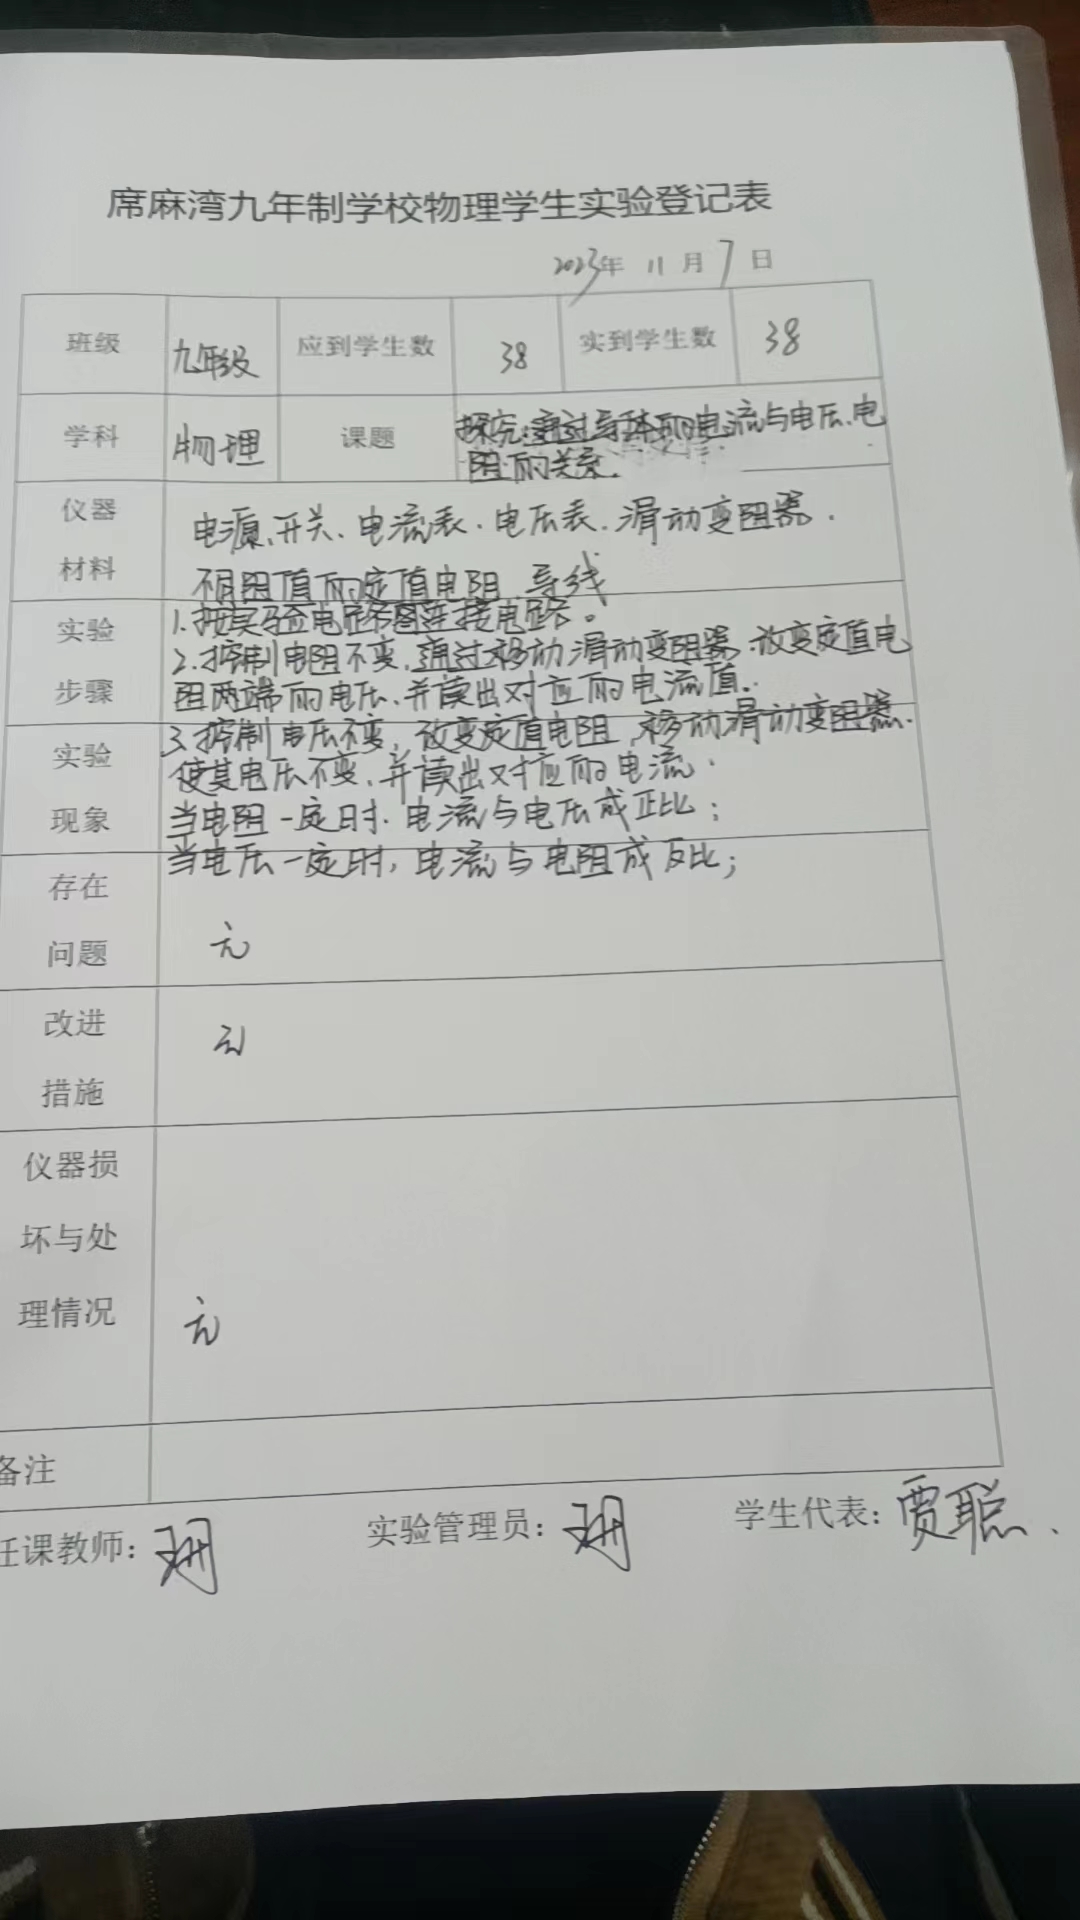 席麻湾九年制学校物理学生实验登记表
2023年 11月7日
班级 九年级 应到学生数 38 实到学生数 38
学科 物理 课题 探究:通过导体的电流与电压、电
阻的关系.
仪器 电源、开关、电流表、电压表、滑动变阻器.
材料 不同阻值的定值电阻、导线
实验 1.按实验电路图连接电路。
2.控制电阻不变,通过移动滑动变阻器,改变定值电
步骤 阻两端的电压,并读出对应的电流值.
实验 3.控制电压不变,改变定值电阻,移动滑动变阻器.
使其电压不变,并读出对应的电流.
现象 当电阻一定时,电流与电压成正比;
当电压一定时,电流与电阻成反比;
存在
问题 无
改进
措施 无
仪器损
坏与处
理情况 无
备注
任课教师: 实验管理员: 学生代表:贾聪